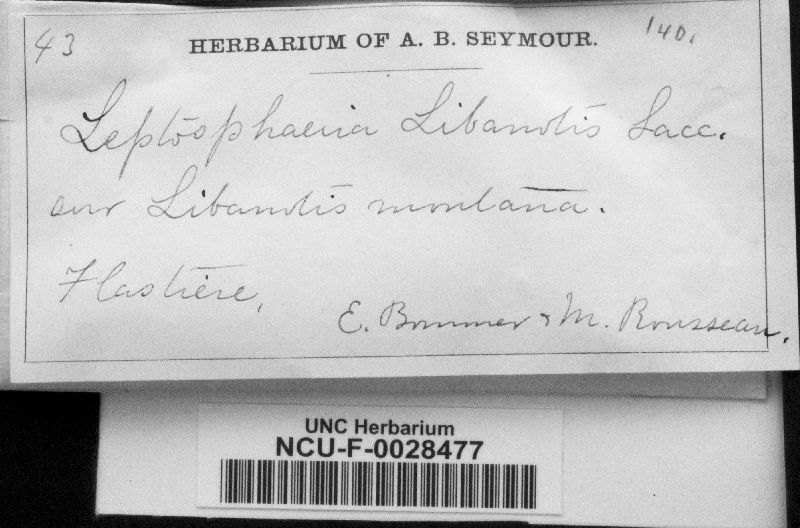 43
HERBARIUM OF A. B. SEYMOUR.
140.
Leptosphaeria Libanotis Sacc.
sur Libanotis montana.
Hastière,
E. Bommer & M. Rousseau.
UNC Herbarium
NCU-F-0028477